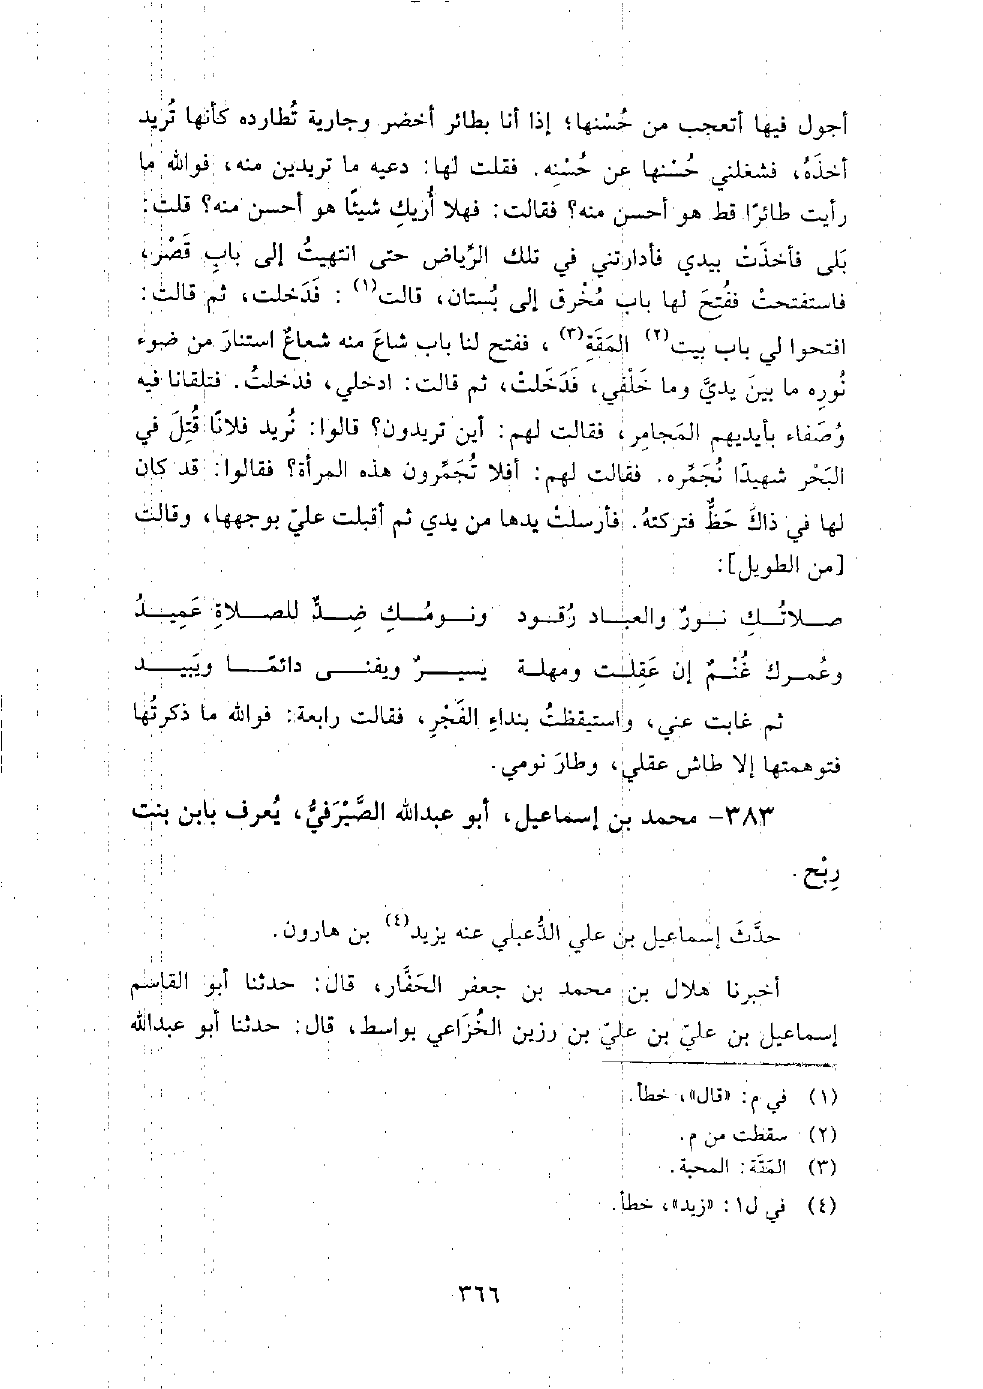 أجول فيها أتعجب من حُسْنها؛ إذا أنا بطائر أخضر وجارية تُطارده كأنها تُريد
أخذَهُ، فشغلني حُسْنها عن حُسْنِه. فقلت لها: دعيه ما تريدين منه، فوالله ما
رأيت طائرًا قط هو أحسن منه؟ فقالت: فهلا أُريكِ شيئًا هو أحسن منه؟ قلت:
بَلى فأخذَتْ بيدي فأدارتني في تلك الرِّياض حتى انتهيتُ إلى بابِ قَصْر،
فاستفتحتْ ففُتِحَ لها باب مُخْرق إلى بُستان، قالت(١): فَدَخلت، ثم قالت:
افتحوا لي باب بيت(٢) المَقَةِ(٣)، ففتح لنا باب شاعَ منه شعاعٌ استنارَ من ضوء
نُورِه ما بينَ يديَّ وما خَلْفي، فَدَخَلتْ، ثم قالت: ادخلي، فدخلتُ. فتلقانا فيه
وُصَفاء بأيديهم المَجامِر، فقالت لهم: أين تريدون؟ قالوا: نُريد فلانًا قُتِلَ في
البَحْر شهيدًا نُجَمِّره. فقالت لهم: أفلا تُجَمِّرون هذه المرأة؟ فقالوا: قد كان
لها في ذاكَ حَظٌّ فتركتهُ. فأرسلتْ يدها من يدي ثم أقبلت عليّ بوجهها، وقالت
[من الطويل]:
صلاتُكِ نورٌ والعباد رُقود ونومُكِ ضِدٌّ للصلاةِ عَمِيدُ
وعُمرك غُنْمٌ إن عَقِلت ومهلة يسيرٌ ويفنى دائمًا ويَبيد
ثم غابت عني، واستيقظتُ بنداءِ الفَجْرِ، فقالت رابعة: فوالله ما ذكرتُها
فتوهمتها إلا طاش عقلي، وطارَ نومي.
٣٨٣- محمد بن إسماعيل، أبو عبدالله الصَّيْرَفيُّ، يُعرف بابن بنت
رِبْح.
حدَّثَ إسماعيل بن علي الدُّعبلي عنه يزيد(٤) بن هارون.
أخبرنا هلال بن محمد بن جعفر الحَفَّار، قال: حدثنا أبو القاسم
إسماعيل بن عليّ بن عليّ بن رزين الخُزَاعي بواسط، قال: حدثنا أبو عبدالله
(١) في م: «قال»، خطأ.
(٢) سقطت من م.
(٣) المَقَة: المحبة.
(٤) في ل١: «زيد»، خطأ.
٣٦٦